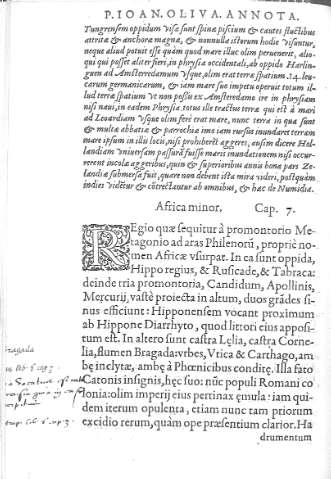 P. IOAN. OLIVA. ANNOTA.
Tungrensem oppidum visa sunt spina piscium & cautes fluctibus
attritæ & anchora magna, & nonnulla istorum hodie visuntur,
neque aliud potuit esse quàm quod mare illuc olim peruenerit, alio-
qui qui posset aliter fieri, in phrysia occidentali, ab oppido Harlin-
guem ad Amsterredamum vsque, olim erat terræ spatium .24. leu-
carum germanicarum, & iam mare suo impetu operuit totum il-
lud terræ spatium vt non possis ex Amsterredamo ire in phrysiam
nisi naui, in eadem Phrysia totus ille tractus terræ qui est à mari
ad Leoardiam vsque olim ferè erat mare, nunc terra in qua sunt
& multæ abbatiæ & parrechiæ imo iam rursus inundaret terram
mare ipsum in illis locis, nisi prohiberet aggeres, ausim dicere Hol-
landiam vniuersam passurā fuisse maris inundationem nisi occur-
rerent incolæ aggeribus, quin & superioribus annis bona pars Ze-
landiæ submersa fuit, quare non debent ista mira videri, postquàm
indies videtur & cōtrectantur ab omnibus, & hæc de Numidia.
Africa minor, Cap. 7.
REgio quæ sequitur à promontorio Me-
tagonio ad aras Philenorū, propriè no-
men Africæ vsurpat. In ea sunt oppida,
Hippo regius, & Rusicade, & Tabraca:
deinde tria promontoria, Candidum, Apollinis,
Mercurij, vastè proiecta in altum, duos grādes si-
nus efficiunt: Hipponensem vocant proximum
ab Hippone Diarrhyto, quod littori eius apposi-
tum est. In altero sunt castra Lęlia, castra Corne-
lia, flumen Bragada: vrbes, Vtica & Carthago, am-
bę inclytæ, ambę à Phœnicibus conditę. Illa fato
Catonis insignis, hęc suo: nūc populi Romani co-
lonia: olim imperij eius pertinax ęmula: iam qui-
dem iterum opulenta, etiam nunc tam priorum
excidio rerum, quàm ope præsentium clarior. Ha
drumentum